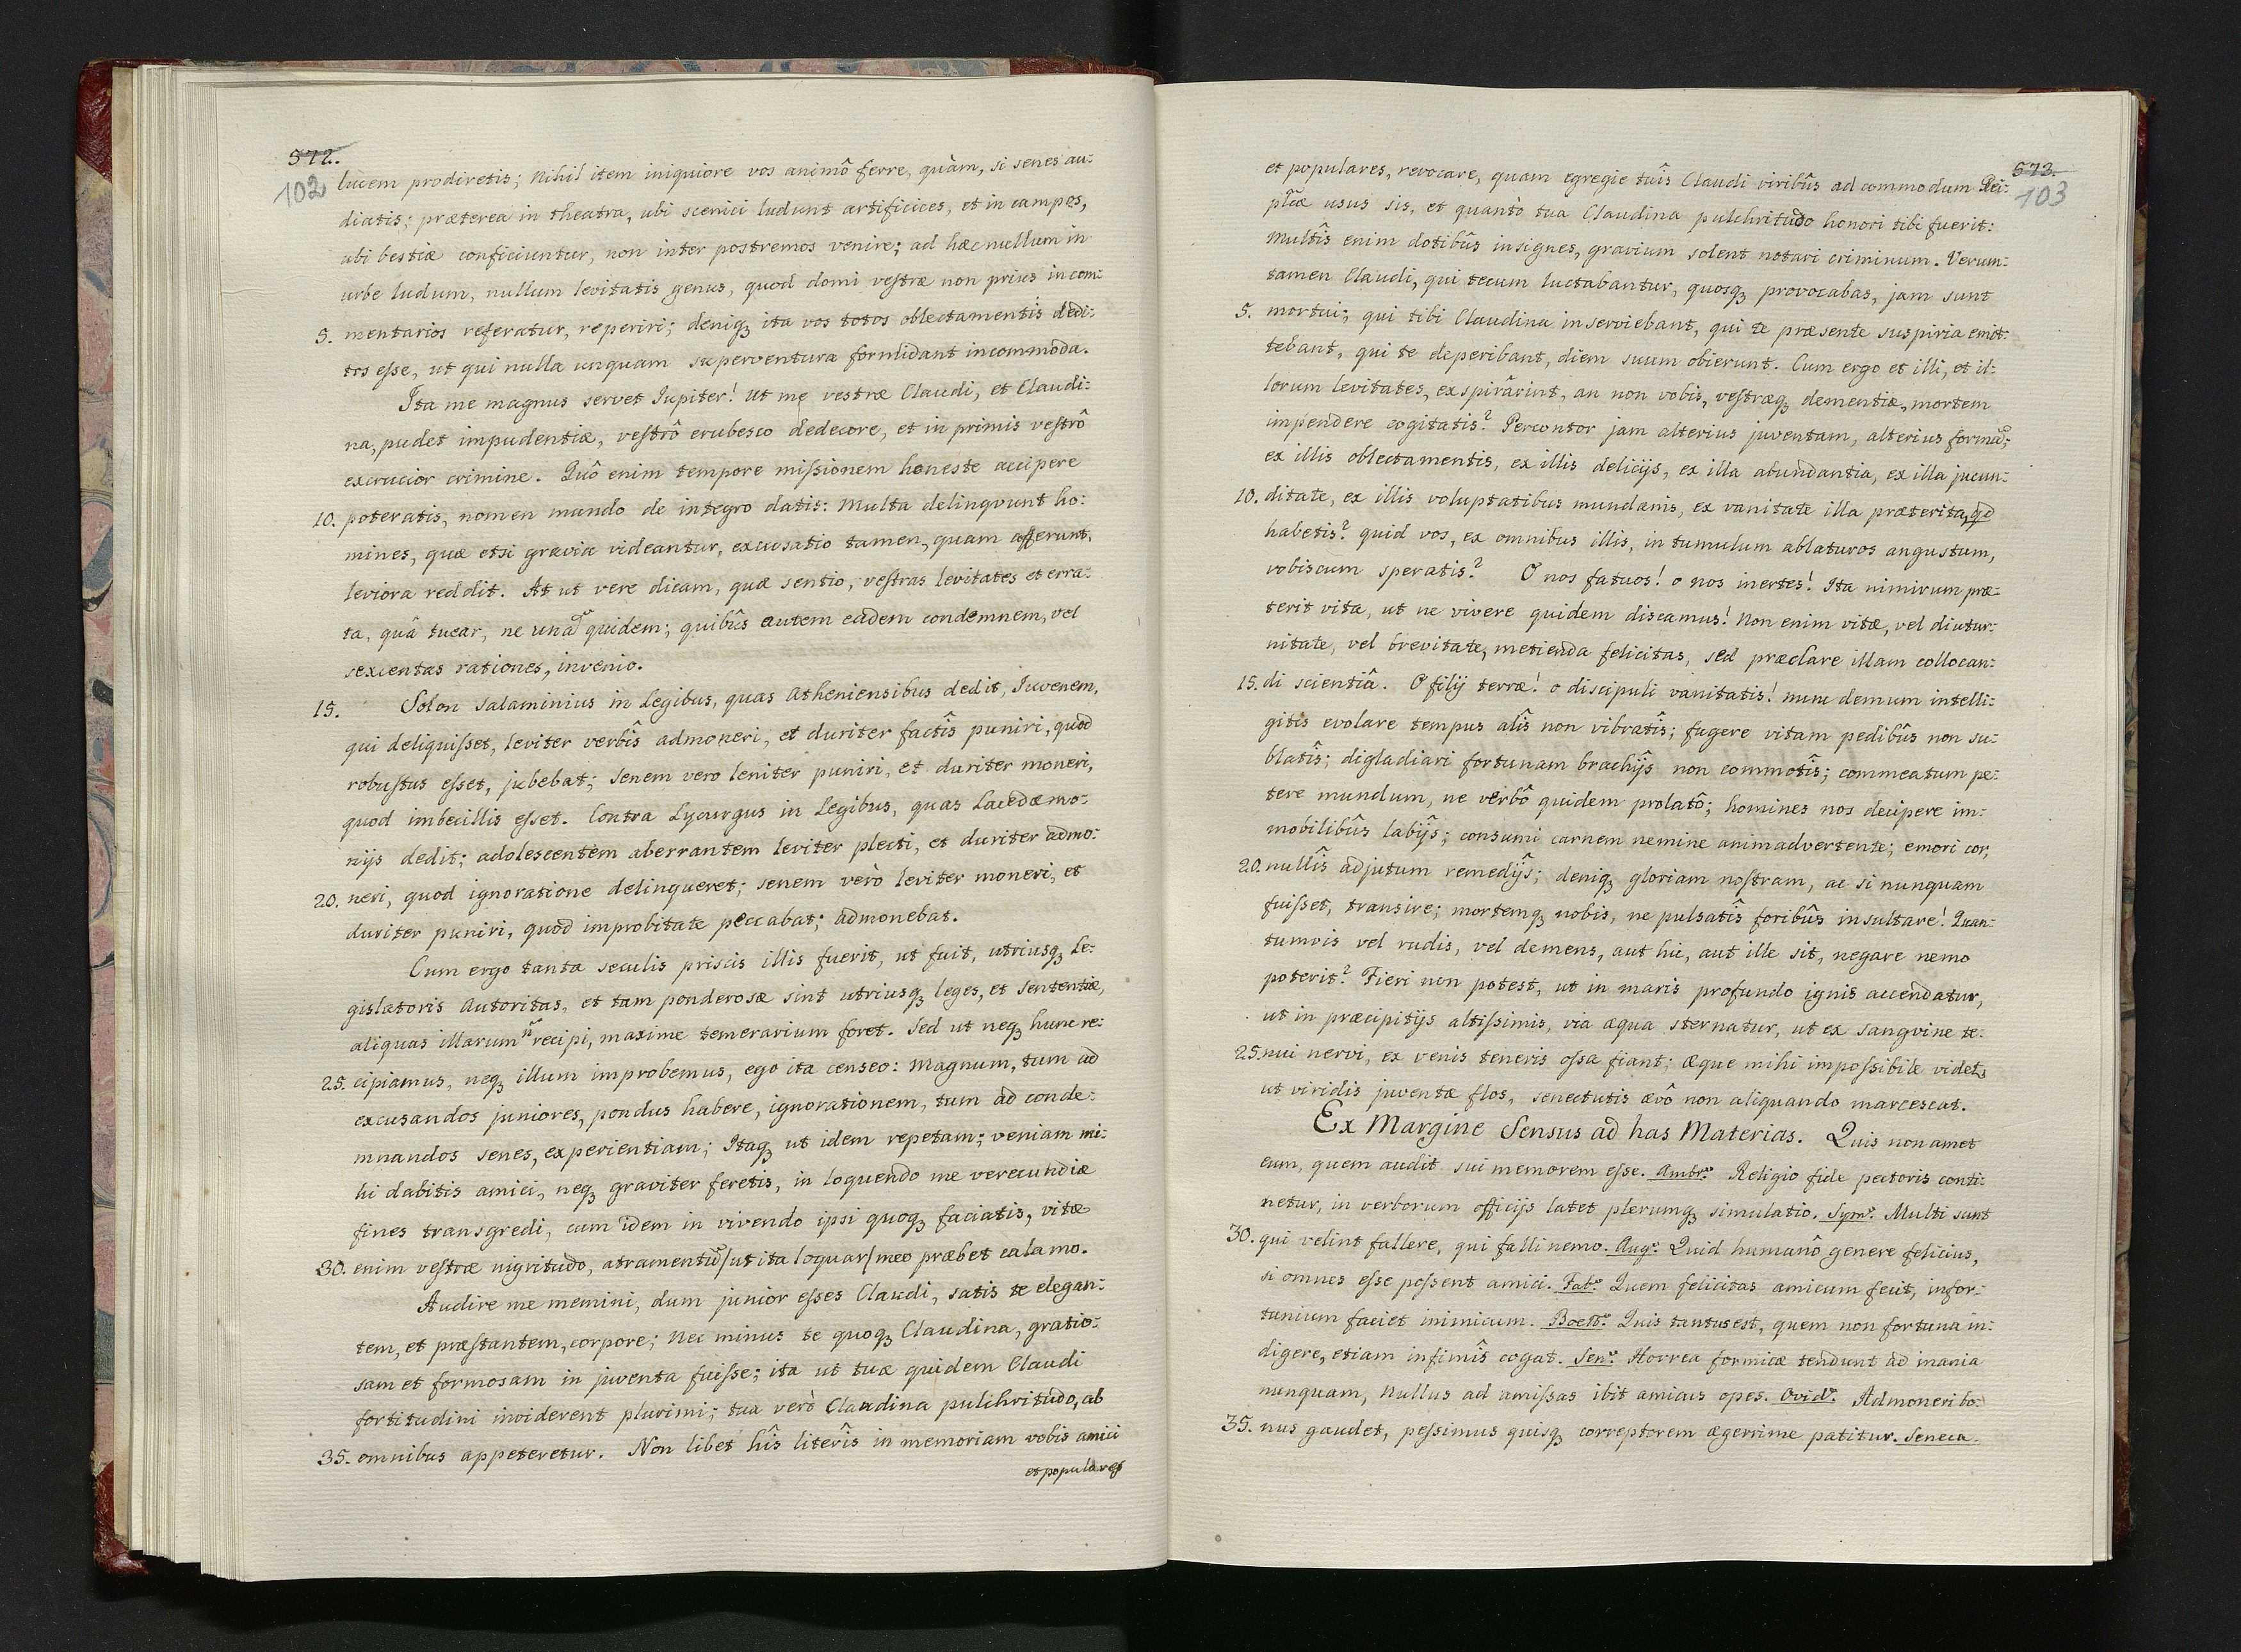 572.
102
lucem prodiretis; nihil item iniquiore vos animô ferre, quàm, si senes au:
diatis; præterea in theatra, ubi scenici ludunt artificices, et in campos,
ubi bestiæ conficiuntur, non inter postremos venire; ad hæc nullum in
urbe ludum, nullum levitatis genus, quod domi vestræ non prius in com:
5. mentarios referatur, reperiri; deniqꝫ ita vos totos oblectamentis dedi:
tos esse, ut qui nulla unquam superventura formidant incommoda.
Ita me magnus servet Jupiter! Ut me vestræ Claudi, et Claudi:
na, pudet impudentiæ, vestrô erubesco dedecore, et in primis vestrô
excrucior crimine. Quô enim tempore missionem honeste accipere
10. poteratis, nomen mundo de integro datis: Multa delinqvunt ho:
mines, quæ etsi gravia videantur, excusatio tamen, quam afferunt,
leviora reddit. At ut vere dicam, quæ sentio, vestras levitates et erra:
ta, quâ tuear, ne unã quidem; quibûs autem eadem condemnem, vel
sexcentas rationes, invenio.
15. Solon Salaminius in Legibus, quas Atheniensibus dedit, Juvenem,
qui deliquisset, leviter verbîs admoneri, et duriter factîs puniri, quod
robustus esset, jubebat; Senem vero leniter puniri, et duriter moneri,
quod imbecillis esset. Contra Lycurgus in Legibus, quas Lacedæmo:
nijs dedit; adolescentem aberrantem leviter plecti, et duriter admo:
20. neri, quod ignoratione delinqueret; senem verò leviter moneri, et
duriter puniri, quod improbitate peccabat; admonebat.
Cum ergo tanta seculis priscis illis fuerit, ut fuit, utriusqꝫ Le:
gislatoris Autoritas, et tam ponderosæ sint utriusqꝫ leges, et Sententiæ,
aliquas illarum ñ recipi, maxime temerarium foret. Sed ut neqꝫ hunc re:
25. cipiamus, neqꝫ illum improbemus, ego ita censeo: Magnum, tum ad
excusandos juniores, pondus habere, ignorationem, tum ad conde:
mnandos senes, experientiam; Itaqꝫ ut idem repetam; veniam mi:
hi dabitis amici, neqꝫ graviter feretis, in loquendo me verecundiæ
fines transgredi, cum idem in vivendo ipsi quoqꝫ faciatis, vitæ
30. enim vestræ nigritudo, atramentũ/ut ita loquar/meo præbet calamo.
Audire me memini, dum junior esses Claudi, satis te elegan:
tem, et præstantem, corpore; nec minus te quoqꝫ Claudina, gratio:
sam et formosam in juventa fuisse; ita ut tuæ quidem Claudi
fortitudini inviderent plurimi; tua verò Claudina pulchritudo, ab
35. omnibus appeteretur. Non libet hîs literîs in memoriam vobis amici
et populares
673.
103
et populares, revocare, quam egregie tuîs Claudi viribûs ad commodum Rei:
pl̃cæ usus sis, et quantò tua Claudina pulchritudo honori tibi fuerit:
Multîs enim dotibûs insignes, gravium solent notari criminum. Verum:
tamen Claudi, qui tecum luctabantur, quosqꝫ provocabas, jam sunt
5. mortui; qui tibi Claudina inserviebant, qui te præsente suspiria emit:
tebant, qui te deperibant, diem suum obierunt. Cum ergo et illi, et il:
lorum levitates, exspirârint, an non vobis, vestræqꝫ dementiæ, mortem
impendere cogitatis? Percontor jam alterius juventam, alterius formã;
ex illis oblectamentis, ex illis delicijs, ex illa abundantia, ex illa jucun:
10. ditate, ex illis voluptatibus mundanis, ex vanitate illa præterita, qd
habetis? quid vos, ex omnibus illis, in tumulum ablaturos angustum,
vobiscum speratis? O nos fatuos! o nos inertes! Ita nimirum præ:
terit vita, ut ne vivere quidem discamus! Non enim vitæ, vel diutur:
nitate, vel brevitate, metienda felicitas, sed præclare illam collocan:
15. di scientiâ. O filij terræ! o discipuli vanitatis! nunc demum intelli:
gitis evolare tempus alîs non vibratîs; fugere vitam pedibûs non su:
blatîs; digladiari fortunam brachîjs non commotîs; commeatum pe:
tere mundum, ne verbô quidem prolatô; homines nos decipere im:
mobilibûs labîjs; consumi carnem nemine animadvertente; emori cor,
20. nullîs adjutum remedîjs; deniqꝫ gloriam nostram, ac si nunquam
fuisset, transire; mortemqꝫ nobis, ne pulsatîs foribûs insultare! Quan:
tumvis vel rudis, vel demens, aut hic, aut ille sit, negare nemo
poterit? Fieri non potest, ut in maris profundo ignis accendatur,
ut in præcipitijs altissimis, via æqua sternatur, ut ex sangvine te:
25. nui nervi, ex venis teneris ossa fiant; æque mihi impossibile videt,
ut viridis juventæ flos, senectutis ævô non aliquando marcescat.
Ex Margine Sensus ad has Materias. Quis non amet
eum, quem audit sui memorem esse. Ambr: Religio fide pectoris conti:
netur, in verborum officijs latet plerumqꝫ simulatio. Sym: Multi sunt
30. qui velint fallere, qui falli nemo. Aug: Quid humanô genere felicius,
si omnes esse possent amici. Fat: Quem felicitas amicum fecit, infor:
tunium faciet inimicum. Boet: Quis tantus est, quem non fortuna in:
digere, etiam infimîs cogat. Sen: Horrea formicæ tendunt ad inania
nunquam, Nullus ad amissas ibit amicus opes. Ovid: Admoneri bo:
35. nus gaudet, pessimus quisqꝫ correptorem ægerrime patitur. Seneca.